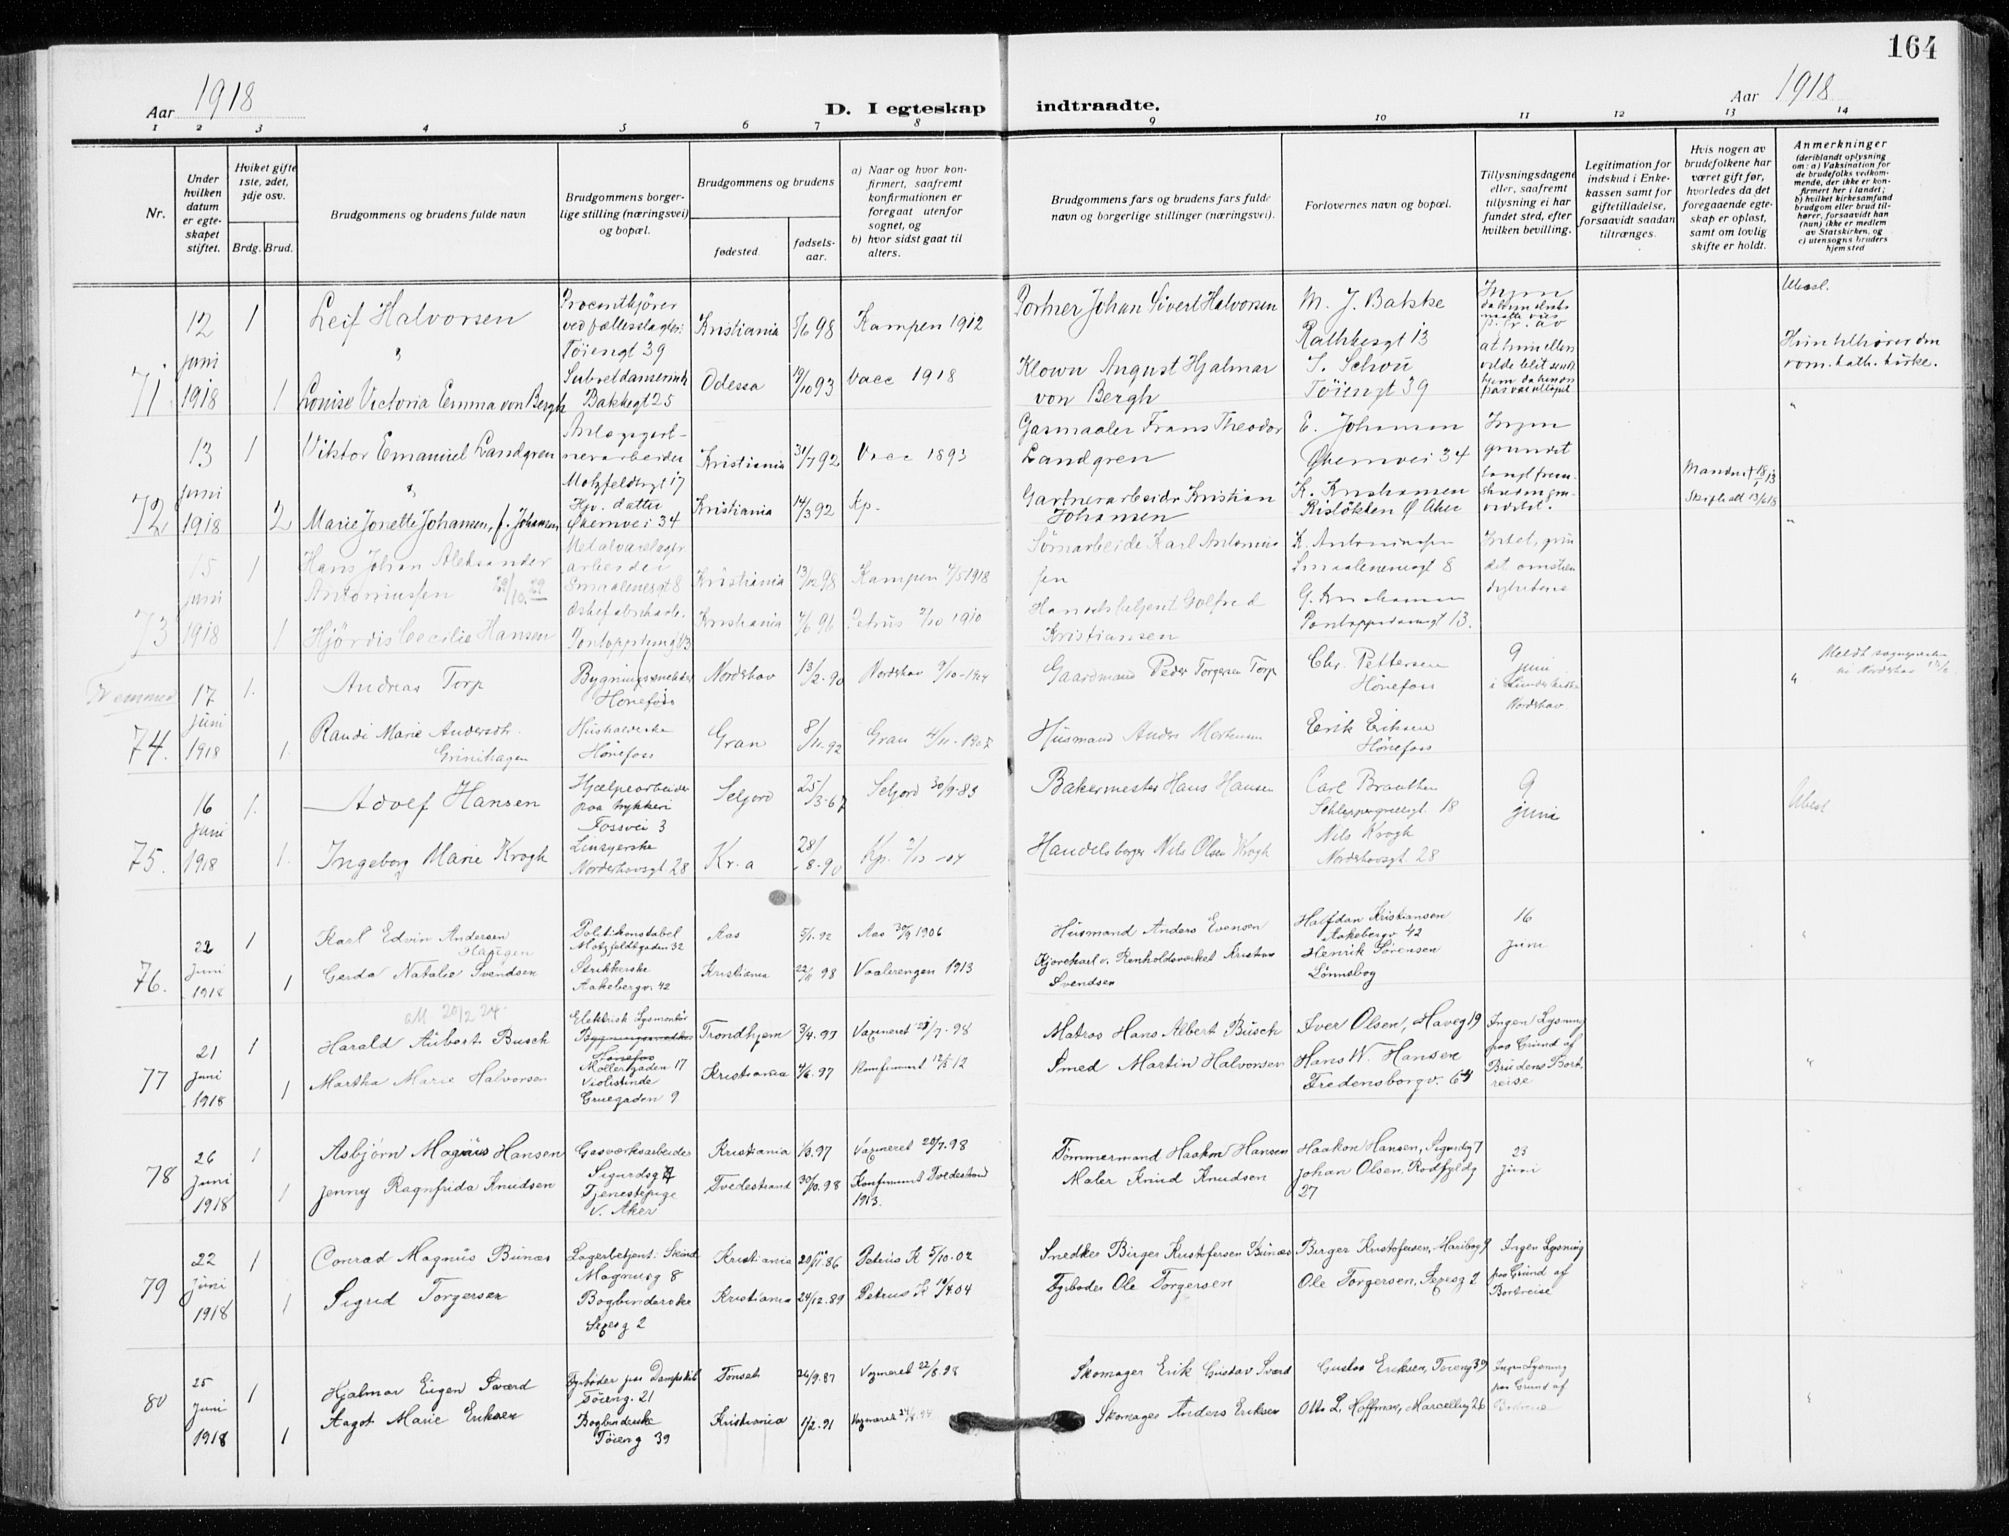 164
Aar 1918
D. I egteskap indtraadte.
Aar 1918
1 2 3 4 5 6 7 8 9 10 11 12 13 14
Nr.
Under hvilken datum er egteskapet stiftet.
Hviket gifte 1ste, 2det, 3dje osv.
Brdg. Brud.
Brudgommens og brudens fulde navn
Brudgommens borgerlige stilling (næringsvei) og bopæl.
Brudgommens og brudens
fødested. fødselsaar.
a) Naar og hvor konfirmert, saafremt konfirmationen er foregaat utenfor sognet, og
b) hvor sidst gaat til alters.
Brudgommens fars og brudens fars fulde navn og borgerlige stillinger (næringsvei).
Forlovernes navn og bopæl.
Tillysningsdagene eller, saafremt tillysning ei har fundet sted, efter hvilken bevilling.
Legitimation for indskud i Enkekassen samt for giftetilladelse, forsaavidt saadan tiltrænges.
Hvis nogen av brudefolkene har været gift før, hvorledes da det foregaaende egteskap er opløst, samt om lovlig skifte er holdt.
Anmerkninger
(deriblandt oplysning om: a) Vaksination for de brudefolks vedkommende, der ikke er konfirmert her i landet; b) hvilket kirkesamfund brudgom eller brud tilhører, forsaavidt han (hun) ikke er medlem av Statskirken, og c) utensogns bruders hjemsted
71
12 juni 1918
1
Leif Halvorsen
Tøiengt 39
Kristiania 5/6 98 Kampen 1912
Portner Johan Sivert Halvorsen
M. J. Bakke
Rathkesgt 13
1
Louise Victoria Emma von Bergh
Bakkegt 25
Odessa 19/10 93 Vacc 1918
Klown August Hjalmar von Bergh
S. Schou
Tøiengt 39
Hun tilhører den rom. kath. kirke.
72
13 juni 1918
1
Viktor Emanuel Landgren
Motzfeldtsgt 17
Kristiania 31/7 92 Vacc 1893
Gasmaaler Frans Theodor Landgren
E. Johansen
Økernvei 34
Ingen grundet
2
Marie Jonette Johansen, f. Johansen
Hjv. datter
Økernvei 34
Kristiania 14/3 92 Kp.
Gartnerarbeider Kristian Johansen
K. Kristiansen
73
15 juni 1918
1
Hans Johan Aleksander Antoniussen
Smaalenesgt 8
Kristiania 13/12 98 Kampen 4/5 1918
K. Antoniussen
Smaalenenesgt 8
1
Hjördis Cecilie Hansen
Kristiania 7/6 96 Petrus 2/10 1910
Handelsbetjent Golfred Kristiansen
G. Kristiansen
Pontoppidansgt 13.
Fremmed
74.
17 juni 1918
1.
Andreas Torp
Hønefoss
Norderhov 13/2-90 Norderhov 9/10-1904
Gaardmand Peder Torgersen Torp
Chr. Pettersen
Hønefoss
9 juni
Norderhov
1.
Randi Marie Andersdtr. Grinihagen
Husholderske
Hønefoss
Gran 8/11-92 Gran 4/11-1907
Husmand Anders Mortensen
Erik Eriksen
Hønefoss
75.
16 juni 1918
1.
Adolf Hansen
Hjælpearbeider paa trykkeri
Fossvei 3
Seljord 25/3-67 Seljord 30/9-83
Bakermester Hans Hansen
Carl Braathen
Schleppegrellsgt. 18
9 juni
1.
Ingeborg Marie Krogh
Linsyerske
Norderhovsgt. 28
Kr.a 28/8-90 Kp. 2/10-04
Handelsborger Nils Olsen Krogh
Nils Krogh
Norderhovsgt. 28
76.
22 juni 1918
1
Karl Edvin Andersen Haugen
Politikonstabel
Motzfeldtgaden 32
Aas 5/1.92 Aas 30/9 1906
Husmand Anders Evensen
Halfdan Kristiansen
Aakebergv 42
16 juni
1
Gerda Natalie Svendsen
Strikkerske
Aakebergv. 42
Kristiania 22/11 98 Vaalerengen 1913
Kjørekarl v. Renholdsverket Kristian Svendsen
Henrik Sørensen
Lønnebog
77
21 juni 1918
1
Harald Aubert Busch
Elektrisk Lysmontør
Hønefos
Møllergaden 17
Trondhjem 3/4.97 Vaxineret 28/7-98
Matros Hans Albert Busch
Iver Olsen, Haveg 19
Ingen Lysning paa Grund af Brudens Bortreise
1
Martha Marie Halvorsen
Violistinde
Gruegaden 9
Kristiania 4/6.97 Konfirmeret 12/5 12
Smed Martin Halvorsen
Hans W. Hansen
Fredensborgv. 64
78
26 juni 1918
1
Asbjørn Magnus Hansen
Gasverksarbeider
Sigurdsg 7
Kristiania 1/3.97 Vaxineret 20/7.98
Tømmermand Haakon Hansen
Haakon Hansen, Sigurdg 7
23 juni
1
Jenny Ragnfrida Knudsen
Tjenestepige
V. Aker
Tvedestrand 30/10.98 Konfirmeret Tvedestrand 1913.
Maler Knud Knudsen
Johan Olsen, Rodfyldg 27
79
22 juni 1918
1
Conrad Magnus Bunæs
Lagerbetjent: Skind
Magnusg 8
Kristiania 20/11.86 Petrus K 5/10.02
Snedker Birger Kristofersen Bunæs
Birger Kristofersen, Maribog 9
Ingen Lysning paa Grund af Bortreise
1
Sigrid Torgersen
Bogbinderske
Sexesg 2
Kristiania 24/12.89 Petrus K 10/4.04
Fyrbøder Ole Torgersen
Ole Torgersen, Sexesg 2
80
25 juni 1918
1
Hjalmar Eugen Sværd
Fyrbøder paa Dampskib
Tøieng. 21
Tønset 26/9.87 Vaxineret 22/8.98
Skomager Erik Gustav Sværd
Gustav Eriksen, Tøieng 39
Ingen Lysning paa Grund af
1
Aagot Marie Eriksen
Bogbinderske
Tøieng 39
Kristiania 1/2.91
Skomager Anders Eriksen
Otto L. Hoffman, Marcellieg 26